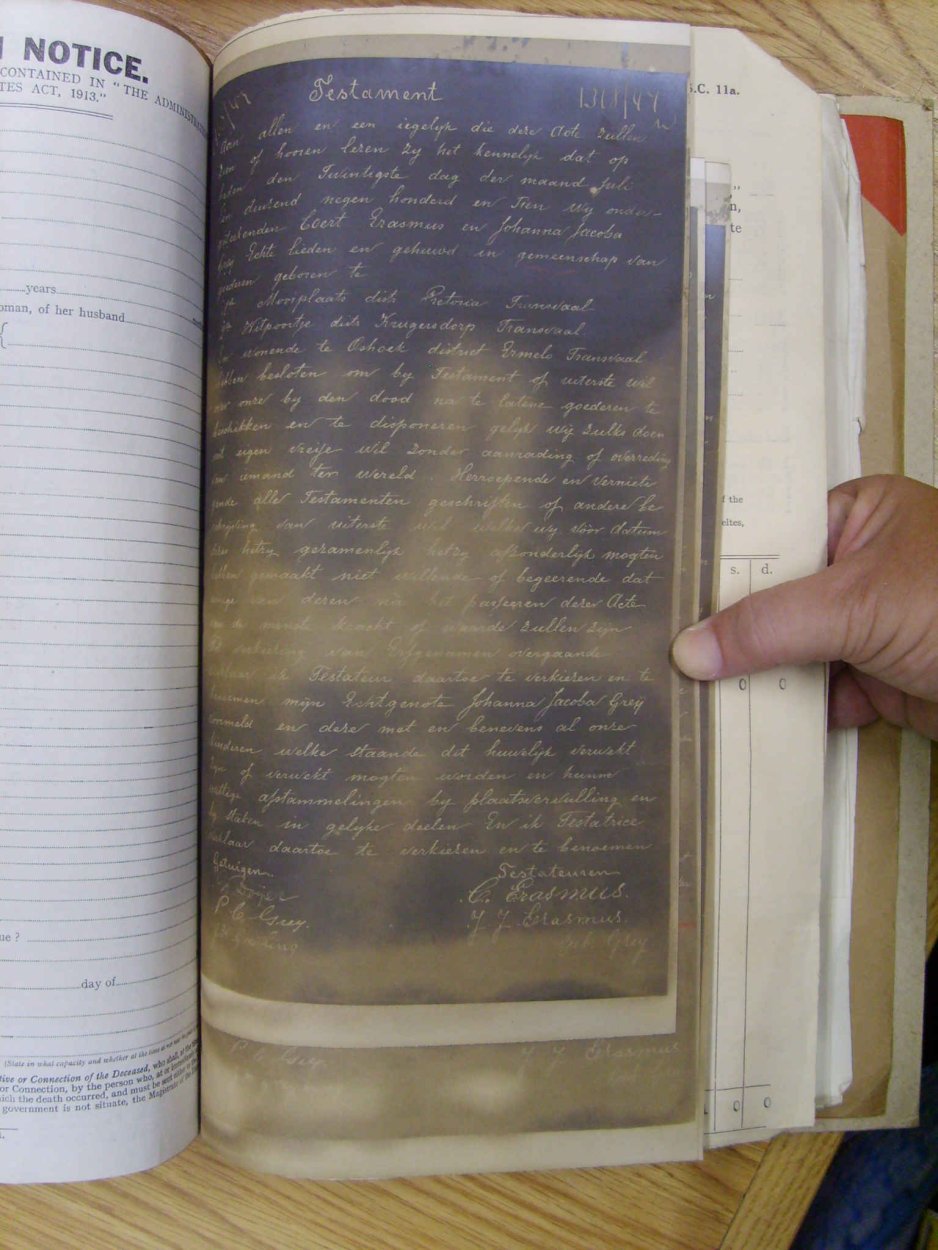 NOTICE.
CONTAINED IN "THE ADMINISTRATION
TES ACT, 1913."
years
oman, of her husband
ue ?
day of
(State in what capacity and whether at the time
tive or Connection of the Deceased, who shall,
or Connection, by the person who, at or
which the death occurred, and must be sent
government is not situate, the Magistrate of the
Testament
1318/47
Aan allen en een iegelijk die deze Acte zullen
zien of hooren lezen Zy het kennelijk dat op
heden den Twintigste dag der maand Juli
een duizend negen honderd en Tien Wij onder-
geteekenden Coert Erasmus en Johanna Jacoba
Grey Echte lieden en gehuwd in gemeenschap van
goederen geboren te
Mooiplaats dist Pretoria Transvaal
Witpoortje dist Krugersdorp Transvaal
wonende te Oshoek district Ermelo Transvaal
hebben besloten om by Testament of uiterste wil
over onze by den dood na te latene goederen te
beschikken en te disponeren gelijk wij zulks doen
uit eigen vreije wil Zonder aanrading of overreding
van iemand ter wereld. Herroepende en Verniete
gende alle Testamenten geschriften of andere be
schrijving van uiterste wil welke wy vóór datum
dezes hetzy gezamenlijk hetzy afzonderlijk mogten
hebben gemaakt niet willende of begeerende dat
eenige van deren na het passeeren dezer Acte
van de minste kracht of waarde Zullen Zijn
Tot verkiezing van Erfgenamen overgaande
verklaar ik Testateur daartoe te verkiezen en te
benoemen mijn Echtgenote Johanna Jacoba Grey
voormeld en deze met en benevens al onze
kinderen welke staande dit huwelijk verwekt
Zijn of verwekt mogten worden en hunne
wettige afstammelingen by plaatsvervulling en
by staken in gelijke deelen En ik Testatrice
verklaar daartoe te verkiezen en te benoemen
Getuigen
Testateuren
C. Erasmus.
P C Grey.
J J Erasmus.
Geb. Grey
P C Grey
J J Erasmus
S.C. 11a.
te
f the
s. d.
0 0
0 0